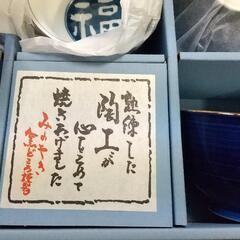 福
熟練した
陶工が
心こめて
焼きあげました
みのやき